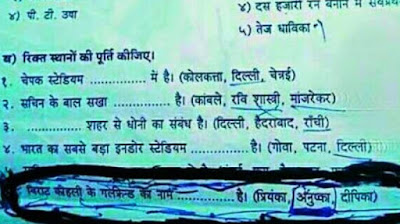 ४) पी. टी. उषा
४) दस हजारी रन बनाने में सर्वप्रथ
५) तेज धाविका
ब) रिक्त स्थानों की पूर्ति कीजिए।
१. चेपक स्टेडियम .................. में है। (कोलकत्ता, दिल्ली, चेन्नई)
२. सचिन के बाल सखा .................. है। (कांबले, रवि शास्त्री, मांजरेकर)
३. .................. शहर से धोनी का संबंध है। (दिल्ली, हैदराबाद, राँची)
४. भारत का सबसे बड़ा इनडोर स्टेडियम .................. है। (गोवा, पटना, दिल्ली)
विराट कोहली के गर्लफ्रेन्ड का नाम .................. है। (प्रियंका, अनुष्का, दीपिका)